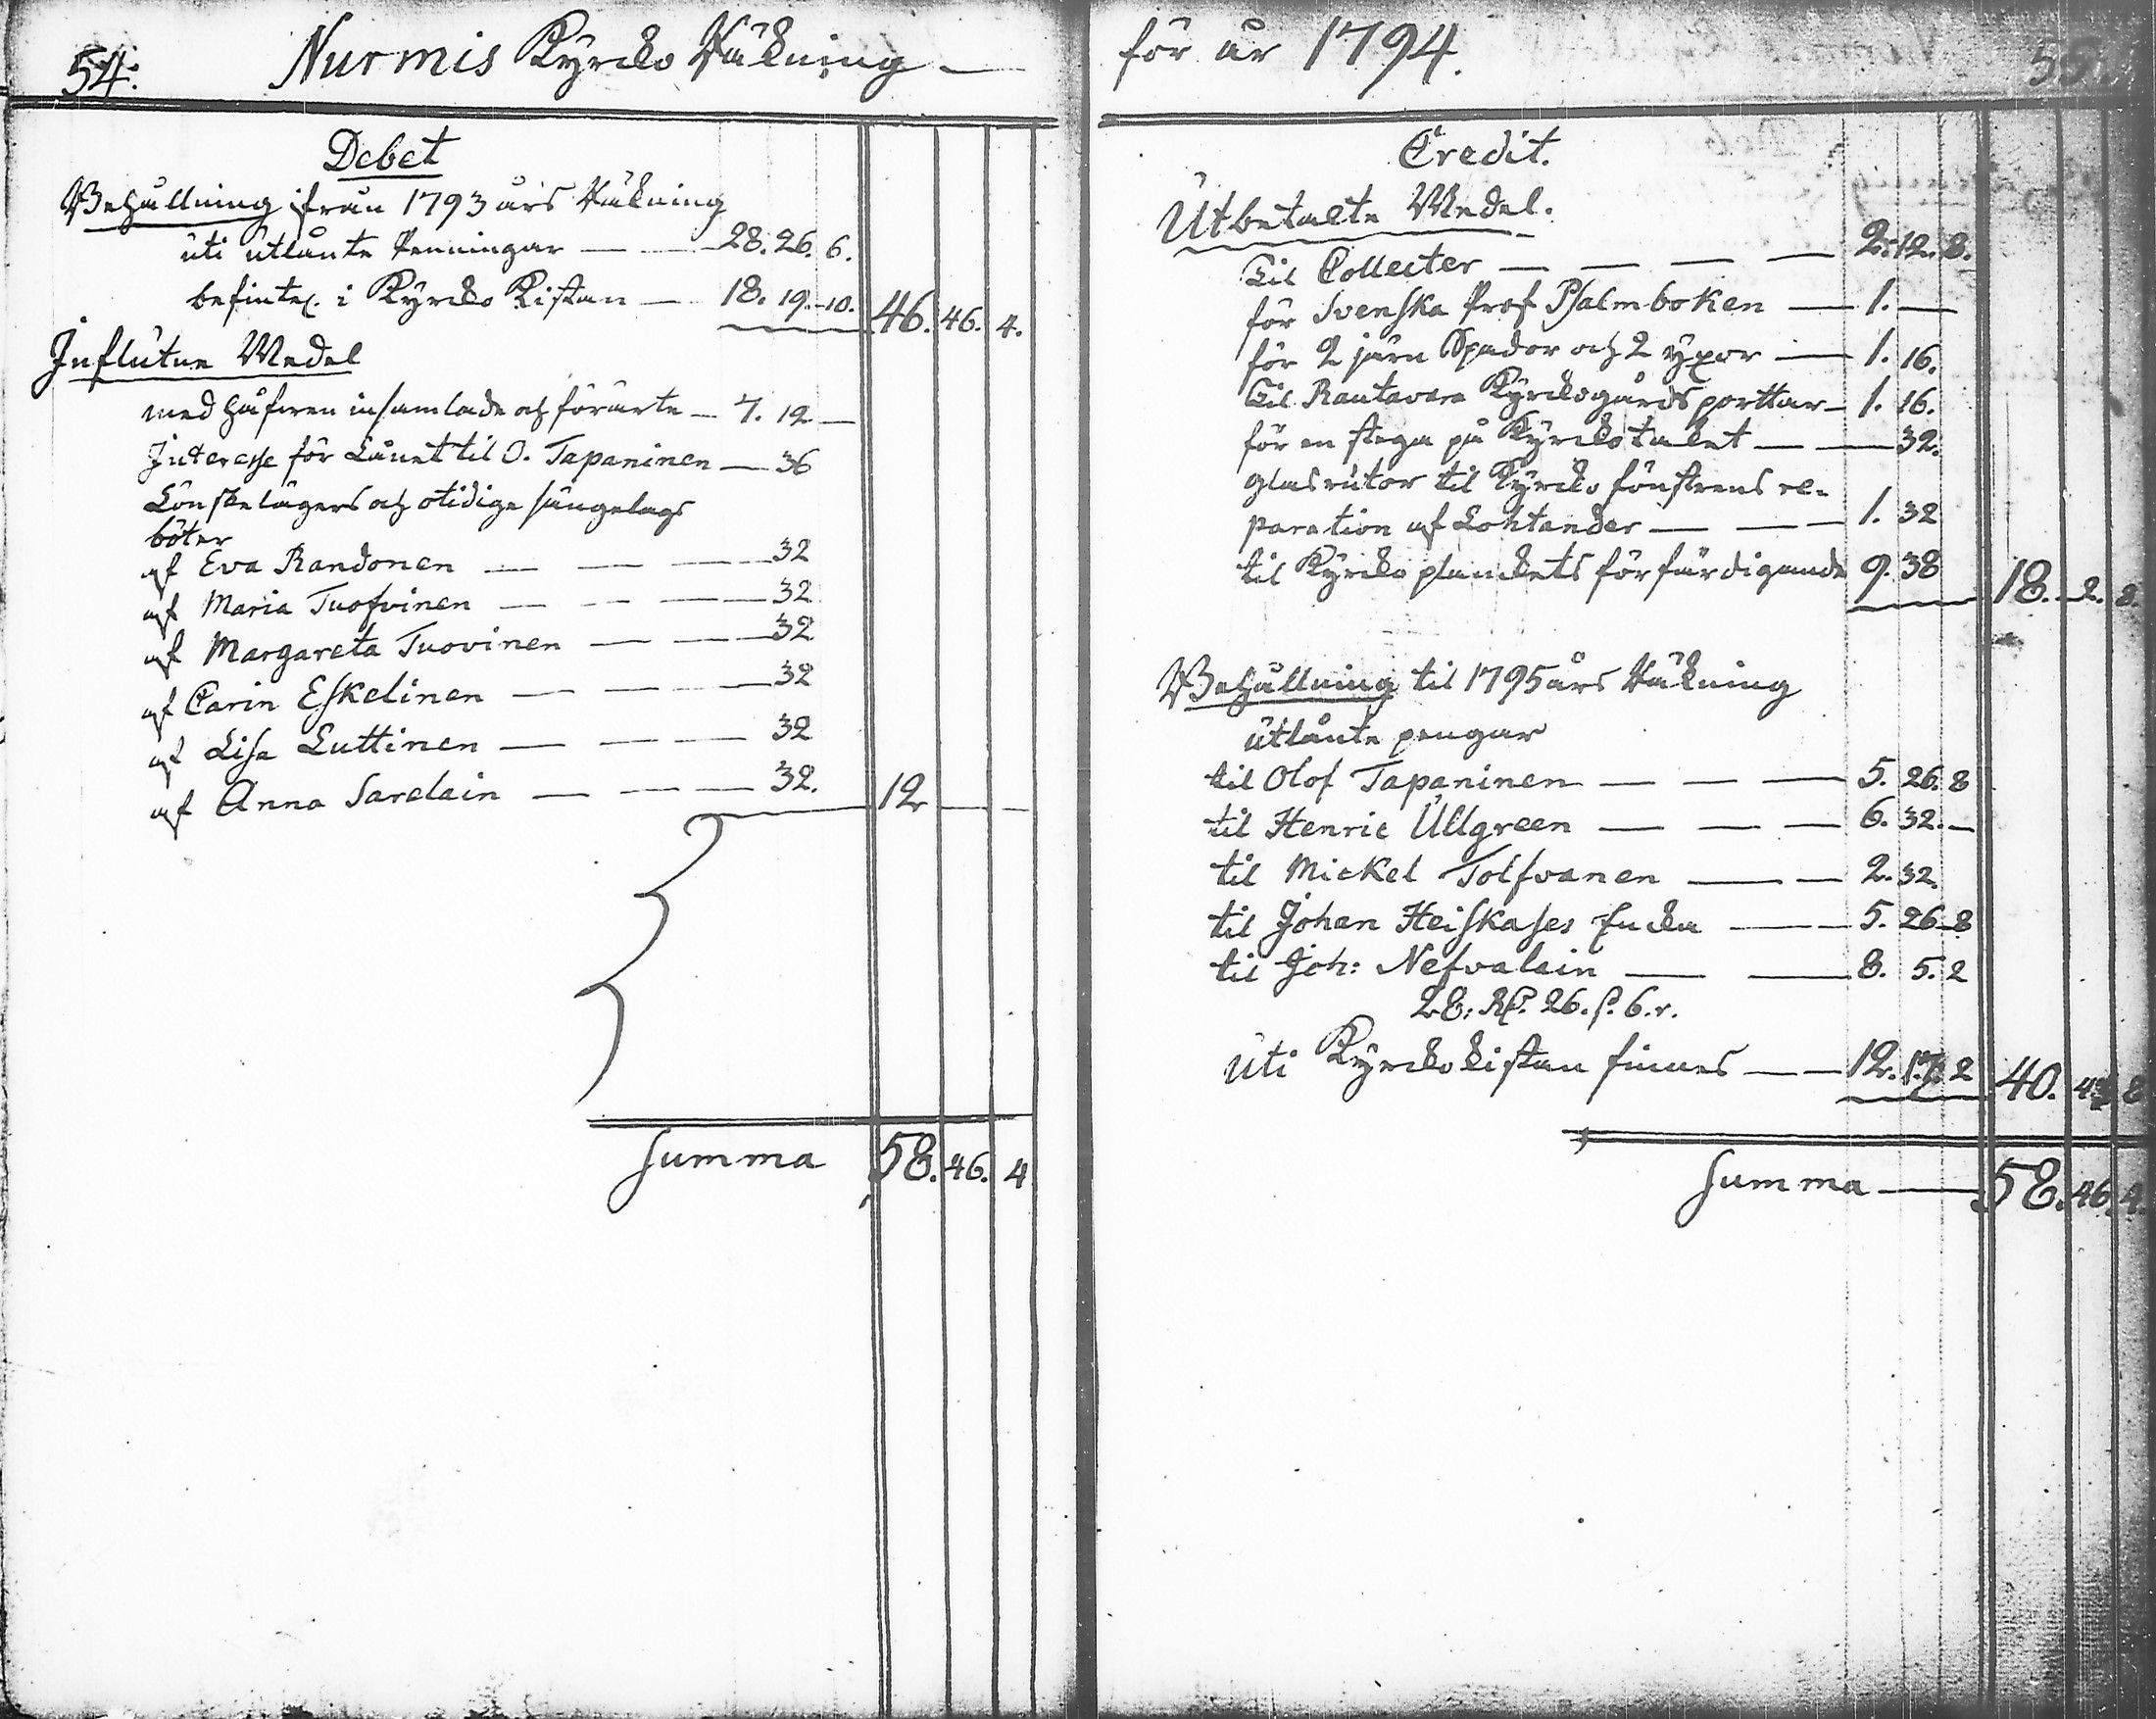 54. Nurmis Kyrcko Räkning —
Debet
Behållning ifrån 1793 års Räkning
uti utlånte Penningar — — 28. 26. 6.
befintel. i Kyrcko Kistan — 18. 19. 10. 46. 46. 4.
Influtne Medel
med håfven insamlade och förärte — 7. 12 —
Interesse för Lånet til O. Tapaninen — 36
Lönskelägers och otidige sängelags
böter
af Eva Randonen — — — 32
af Maria Tuofvinen — — — 32
af Margareta Tuovinen — — 32
af Carin Eskelinen — — — 32
af Lisa Luttinen — — — 32
af Anna Sarelain — — — 32. 12 — —
Summa 58. 46. 4
för år 1794. 55.
Credit.
Utbetalte Medel.
Til Collecter — — — — 2. 12. 8.
för Svenska Prof Psalmboken — 1. —
för 2 järn Spador och 2 yxor — 1. 16.
Til Rautavara Kyrckogårds porttar — 1. 16.
för en stega på Kyrckotaket — — 32.
glasrutor til Kyrcko fönstrens re-
paration af Lohtander — — — 1. 32
til Kyrcko planckets förfärdigande 9. 38 18. 2. 8.
Behållning til 1795 års Räkning
utlånte pengar
til Olof Tapaninen — — — 5. 26. 8
til Henric Ullgreen — — — 6. 32. —
til Mickel Tolfvanen — — 2. 32.
til Johan Heiskases Encka — — 5. 26. 8
til Joh: Nefvalain — — 8. 5. 2
28. Rd. 26. s. 6. r.
uti Kyrckokistan finnes — — 12. 17. 2 40. 43 8
Summa — 58. 46. 4.